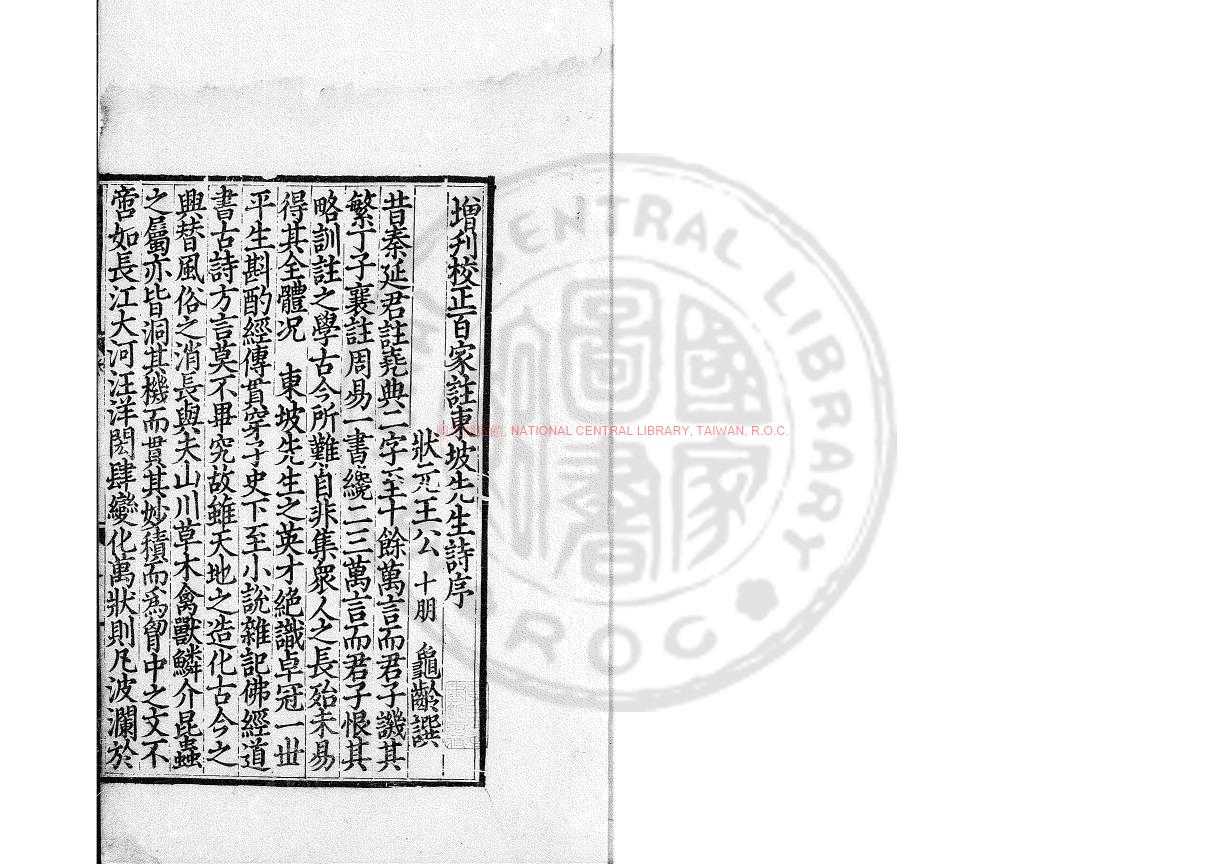 增刋校正百家註東坡先生詩序
狀元王公 十朋 龜齡譔
昔秦延君註堯典二字至十餘萬言而君子譏其
繁丁子襄註周易一書纔二三萬言而君子恨其
略訓註之學古今所難自非集衆人之長殆未易
得其全體况 東坡先生之英才絶識卓冠一丗
平生斟酌經傳貫穿子史下至小說雜記佛經道
書古詩方言莫不畢究故雖天地之造化古今之
興替風俗之消長與夫山川草木禽獸鱗介昆蟲
之屬亦皆洞其機而貫其妙積而為胷中之文不
啻如長江大河汪洋閎肆變化萬狀則凡波瀾於
NATIONAL CENTRAL LIBRARY, TAIWAN, R.O.C.
CENTRAL LIBRARY
R O C